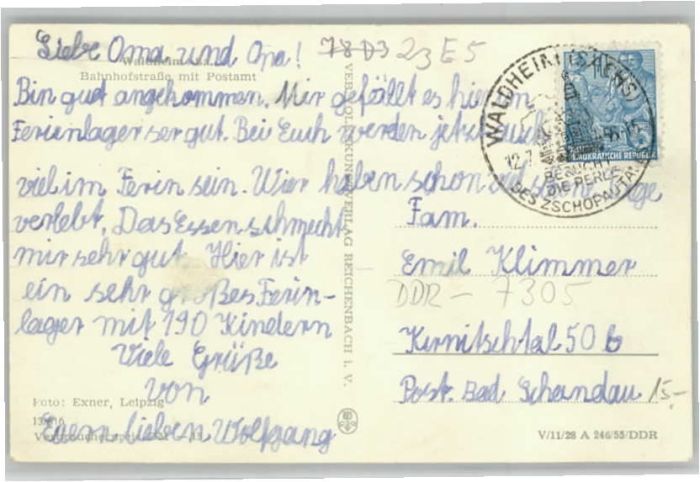 Liebe Oma und Opa!
78 D3 23 E 5
Bahnhofstraße mit Postamt
Bin gut angekommen. Mir gefällt es hier im
Ferienlager ser gut. Bei Euch werden jetzt auch
viel im Ferin sein. Wier haben schon viel schöne Tage
verlebt. Das Essen schmeckt
mir sehr gut. Hier ist
ein sehr großes Ferin-
lager mit 190 Kindern
Viele Grüße
von
Euern lieben Wolfgang
Foto: Exner, Leipzig
VERLAG REICHENBACH i. V.
WALDHEIM (SACHS)
12.7
BESUCHT
DIE PERLE
DES ZSCHOPAUTALES
DEMOKRATISCHE REPUBLIK
Fam.
Emil Klimmer
DDR - 7305
Kirnitschtal 50 b
Post. Bad Schandau
15,-
V/11/28 A 246/55/DDR